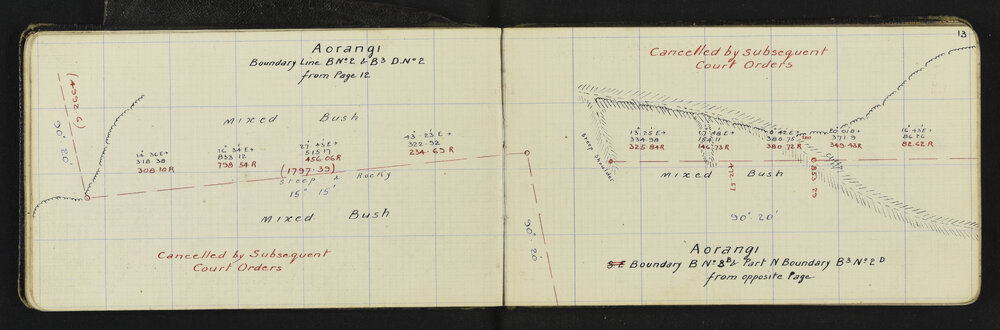 Aorangi
Boundary Line B No 2 & B3 D. No 2
from Page 12
(4992.6)
90° 20'
Mixed Bush
14° 36 E+
318.38
308.10 R
16° 34 E+
833.12
798.54 R
27° 43 E+
515.17
456.06 R
43° 23 E+
322.92
234.69 R
(1797.39)
Steep & Rocky
15° 15'
Mixed Bush
Cancelled by Subsequent
Court Orders
90° 20'
13
Cancelled by Subsequent
Court Orders
Steep Shoulder
13° 25 E+
334.98
325.84 R
17° 48 E+
154.11
146.73 R
380.75
380.72 R
20° 01 D+
371.9
349.43 R
16° 43 E+
86.26
82.62 R
472.57
853.29
Mixed Bush
90° 20'
Aorangi
S E Boundary B No 3B & Part N Boundary B3 No 2 D
from opposite Page